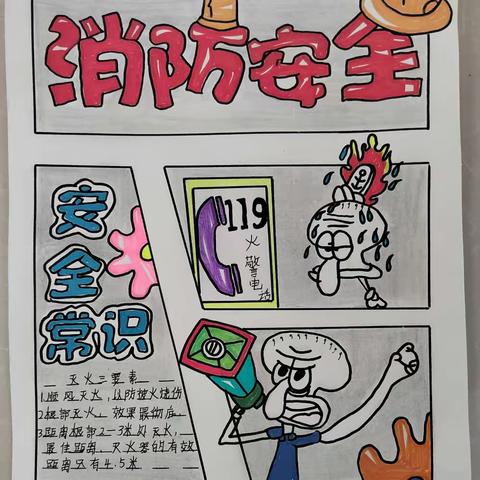 消防安全
119
火警电话
安全常识
灭火三要素
1.顺风灭火,以防被火烧伤
2.根部灭火。效果最彻底
3.距离根部2-3米处灭火,
最佳距离,灭火器的有效
距离只有4.5米